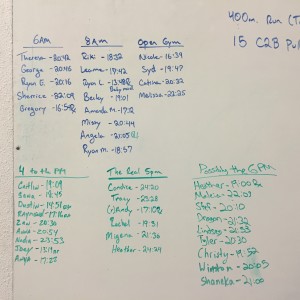 400m. Run
15 C2B Pu
6AM
Theresa - 20:42
George - 20:46
Ryan E. - 20:16
Shamice - 22:09
Gregory - 16:58
8AM
Riki - 18:32
Leanne - 17:42
Ryan L. - 13:
Becky - 19:01
Amanda M. - 17:12
Missy - 20:44
Angela - 20:05
Ryan M. - 18:57
Open Gym
Nicole - 16:39
Syd - 19:47
Catina - 20:32
Melissa - 22:25
4 to the PM
Caitlin - 19:09
Dustin - 14:51
Raymond - 17:16
Nadia - 23:53
Joey - 15:11
Angie - 17:25
The Real 5pm
Candice - 24:20
Tracy - 25:28
(c)Andy - 17:10
Rachel - 19:31
Miyana - 21:36
Heather - 24:29
Possibly the 6PM
Heather - 19:00
Malicia - 22:07
Stef - 20:10
Deagon - 21:32
Lindsay - 21:53
Tyler - 20:30
Christy - 19:52
Winston - 20:03
Shaneka - 21:00